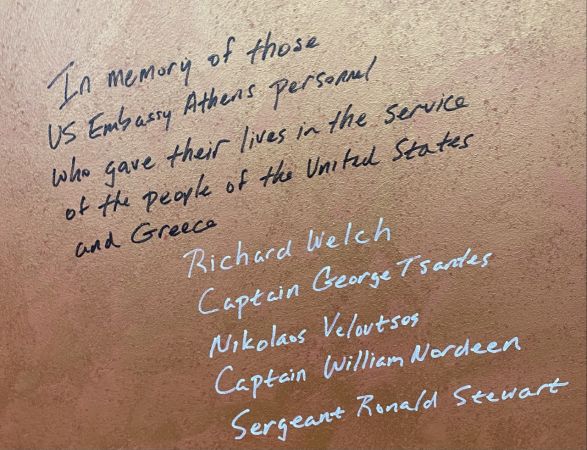 In memory of those
US Embassy Athens personnel
who gave their lives in the service
of the people of the United States
and Greece
Richard Welch
Captain George Tsantes
Nikolaos Veloutsos
Captain William Nordeen
Sergeant Ronald Stewart